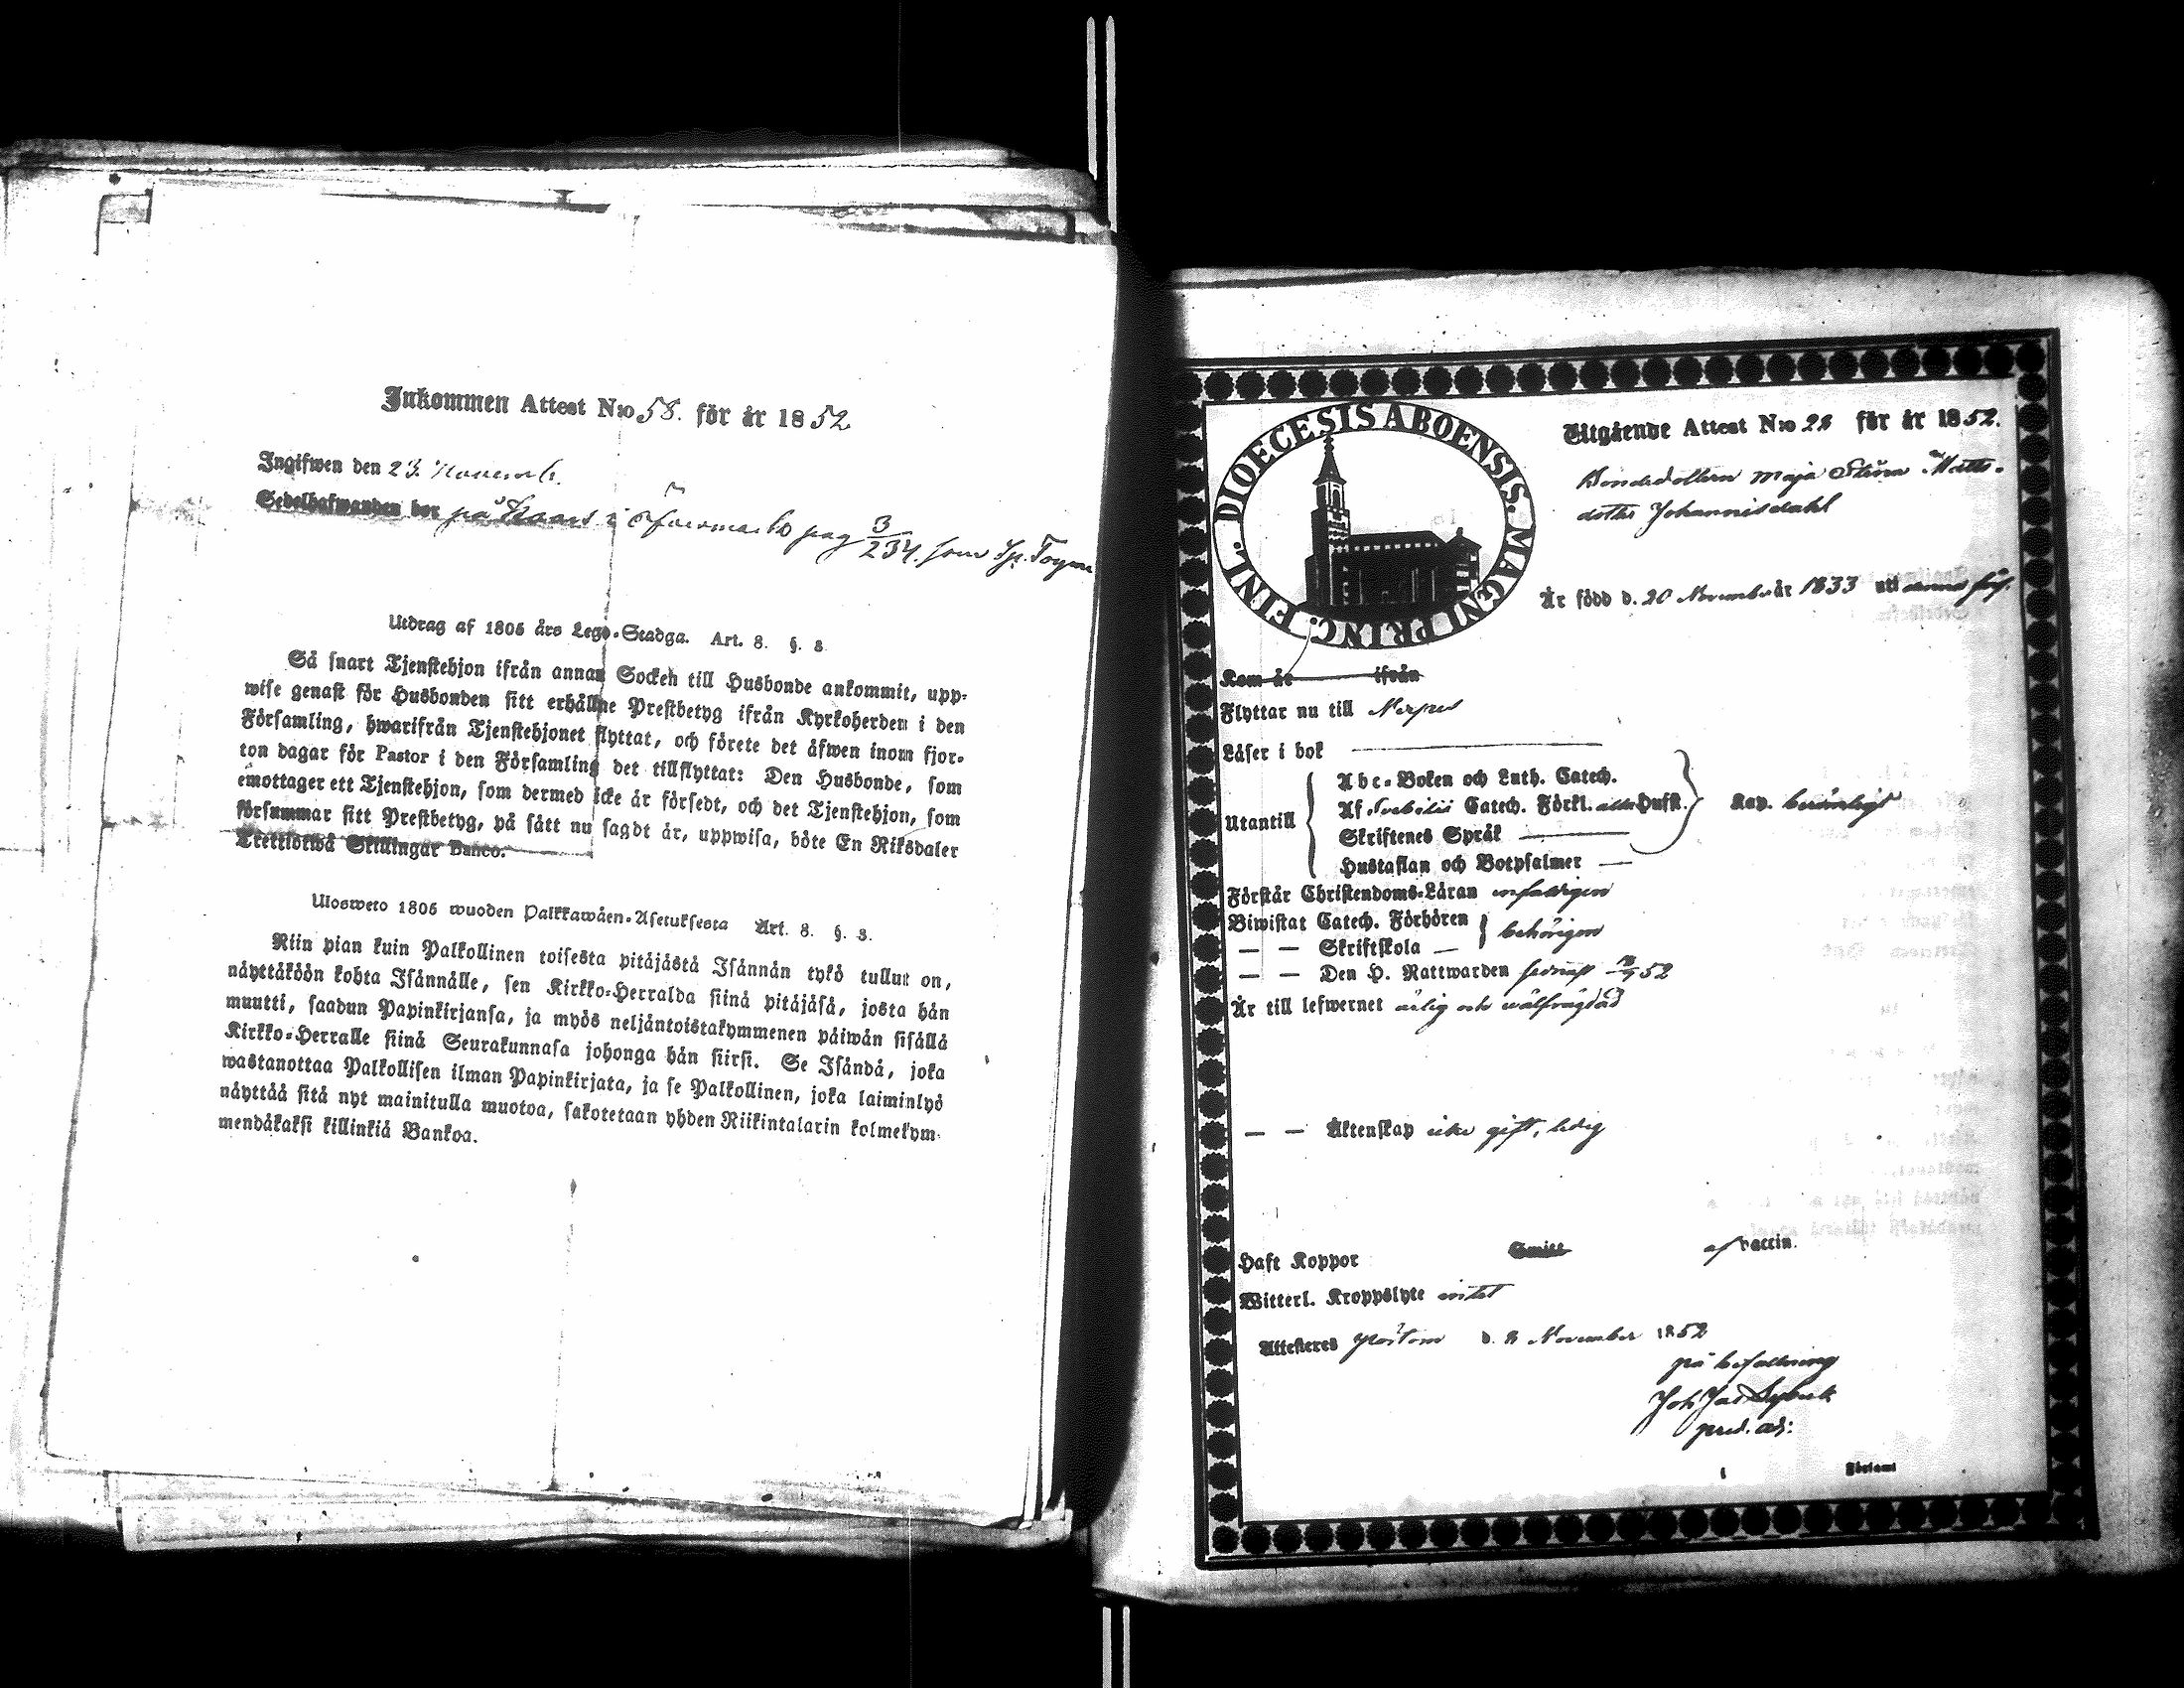 Inkommen Attest N:o 58. för år 1852
Ingifwen den 23 Novemb.
Sedelhafwanden bor på i pag 3/234. som
Utdrag af 1805 års Lego-Stadga. Art. 8. §. 3.
Så snart Tjenstehjon ifrån annan Socken till Husbonde ankommit, upp-
wise genast för Husbonden sitt erhållne Prestbetyg ifrån Kyrkoherden i den
Församling, hwarifrån Tjenstehjonet flyttat, och förete det äfwen inom fjor-
ton dagar för Pastor i den Församling det tillflyttat: Den Husbonde, som
emottager ett Tjenstehjon, som dermed icke är försedt, och det Tjenstehjon, som
försummar sitt Prestbetyg, på sätt nu sagdt är, uppwisa, böte En Riksdaler
Trettiotwå Skillingar Banco.
Ulosweto 1805 wuoden Palkkawäen-Asetuksesta Art. 8. §. 3.
Niin pian kuin Palkollinen toisesta pitäjästä Isännän tykö tullut on,
näyttäköön kohta Isännälle, sen Kirkko-Herralda siinä pitäjäsä, josta hän
muutti, saadun Papinkirjansa, ja myös neljäntoistakymmenen päiwän sisällä
Kirkko-Herralle siinä Seurakunnasa johonga hän siirsi. Se Isändä, joka
wastanottaa Palkollisen ilman Papinkirjata, ja se Palkollinen, joka laiminlyö
näyttää sitä nyt mainitulla muotoa, sakotetaan yhden Riikintalarin kolmekym-
mendäkaksi killinkiä Bankoa.
DIOECESIS ABOENSIS. MAGNI PRINC. FINL.
Utgående Attest N:o 28 för år 1852.
Bondedottern Maja Stina Matts-
dotter Johannisdahl
Är född d. 20 November år 1833 uti denna förs.
Kom år ifrån
Flyttar nu till Nerpes
Läser i bok
Abc-Boken och Luth. Catech.
Utantill Af Svebilii Catech. Förkl. Husfl. Kap. berömligt
Skriftenes Språk
Hustaflan och Botpsalmer
Förstår Christendoms-Läran enfaldigen
Biwistat Catech. Förhören behörigen
— — Skriftskola —
— — Den H. Nattwarden sednast 52
Är till lefwernet ärlig och wälfrägdad
— — Äktenskap icke gift, ledig
Haft Koppor Smitt af Vaccin.
Witterl. Kroppslyte intet
Attesteras Pörtom d. 8 November 1852
på befallning
Joh Jac
pred. adj: